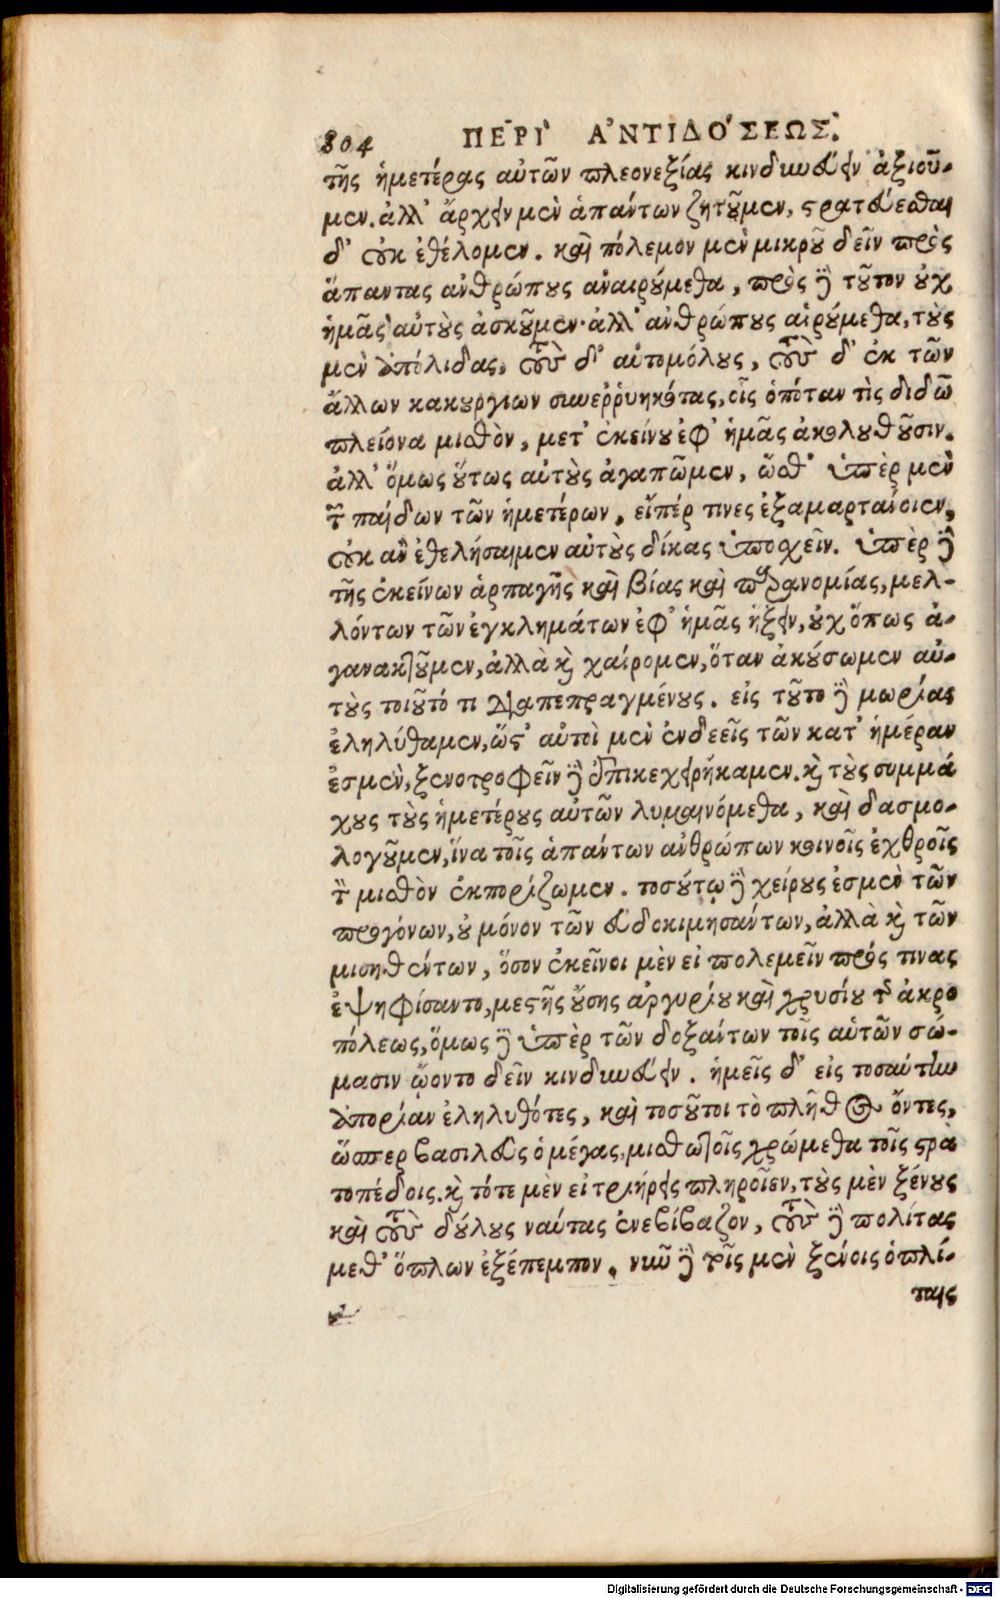 804 ΠΕΡΙ ἈΝΤΙΔΌΣΕΩΣ.
τῆς ἡμετέρας αὐτῶν πλεονεξίας κινδυνεύειν ἀξιοῦ-
μεν. ἀλλ' ἄρχειν μὲν ἁπάντων ζητοῦμεν, στρατεύεσθαι
δ' οὐκ ἐθέλομεν. καὶ πόλεμον μὲν μικροῦ δεῖν πρὸς
ἅπαντας ἀνθρώπους ἀναιρούμεθα, πρὸς δὲ τοῦτον οὐχ
ἡμᾶς αὐτοὺς ἀσκοῦμεν· ἀλλ' ἀνθρώπους αἱρούμεθα, τοὺς
μὲν ἀπόλιδας, τοὺς δ' αὐτομόλους, τοὺς δ' ἐκ τῶν
ἄλλων κακουργιων συνερρυηκότας, οἷς ὁπόταν τὶς διδῶ
πλείονα μισθὸν, μετ' ἐκείνου ἐφ' ἡμᾶς ἀκολουθοῦσιν.
ἀλλ' ὅμως οὕτως αὐτοὺς ἀγαπῶμεν, ὥσθ' ὑπὲρ μὲν
τῶν παίδων τῶν ἡμετέρων, εἴπέρ τινες ἐξαμαρταίοιεν,
οὐκ ἂν ἐθελήσαιμεν αὐτοὺς δίκας ὑποσχεῖν. ὑπὲρ δὲ
τῆς ἐκείνων ἁρπαγῆς καὶ βίας καὶ παρανομίας, μελ-
λόντων τῶν ἐγκλημάτων ἐφ' ἡμᾶς ἥξειν, οὐχ ὅπως ἀ-
γανακτοῦμεν, ἀλλὰ καὶ χαίρομεν, ὅταν ἀκούσωμεν αὐ-
τοὺς τοιοῦτό τι διαπεπραγμένους. εἰς τοῦτο δὲ μωρίας
ἐληλύθαμεν, ὥστ' αὐτοὶ μὲν ἐνδεεῖς τῶν κατ' ἡμέραν
ἐσμὲν, ξενοτροφεῖν δὲ ἐπικεχειρήκαμεν. καὶ τοὺς συμμά
χους τοὺς ἡμετέρους αὐτῶν λυμαινόμεθα, καὶ δασμο-
λογοῦμεν, ἵνα τοῖς ἁπάντων ἀνθρώπων κοινοῖς ἐχθροῖς
τὸν μισθὸν ἐκπορίζωμεν. τοσούτῳ δὲ χείρους ἐσμὲν τῶν
προγόνων, οὐ μόνον τῶν εὐδοκιμησάντων, ἀλλὰ καὶ τῶν
μισηθέντων, ὅσον ἐκεῖνοι μὲν εἰ πολεμεῖν πρός τινας
ἐψηφίσαντο, μεστῆς οὔσης ἀργυρίου καὶ χρυσίου τῆς ἀκρο
πόλεως, ὅμως δὲ ὑπὲρ τῶν δοξάντων τοῖς αὑτῶν σώ-
μασιν ᾤοντο δεῖν κινδυνεύειν. ἡμεῖς δ' εἰς τοσαύτην
ἀπορίαν ἐληλυθότες, καὶ τοσοῦτοι τὸ πλῆθος ὄντες,
ὥσπερ βασιλεὺς ὁ μέγας, μισθωτοῖς χρώμεθα τοῖς στρα
τοπέδοις. καὶ τότε μὲν εἰ τριήρεις πληροῖεν, τοὺς μὲν ξένους
καὶ τοὺς δούλους ναύτας ἐνεβίβαζον, τοὺς δὲ πολίτας
μεθ' ὅπλων ἐξέπεμπον. νῦν δὲ τοῖς μὲν ξένοις ὁπλί-
ταις
Digitalisierung gefördert durch die Deutsche Forschungsgemeinschaft - DFG